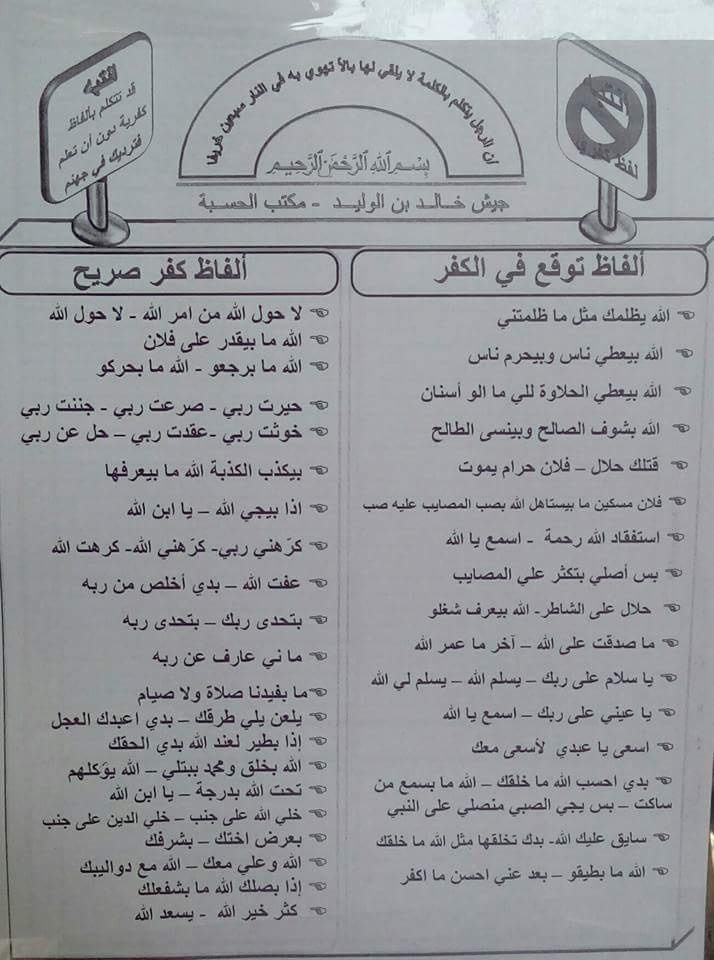 أن الرجل يتكلم بالكلمة لا يلقي لها بالا تهوي به في النار سبعين خريفا
انتبه
لفظ كفري
انتبه
قد تتكلم بألفاظ
كفرية بدون أن تعلم
فترديك في جهنم
بِسْمِ اللَّهِ الرَّحْمَنِ الرَّحِيمِ
جيش خالد بن الوليد - مكتب الحسبة
ألفاظ توقع في الكفر
الله يظلمك مثل ما ظلمتني
الله بيعطي ناس وبيحرم ناس
الله بيعطي الحلاوة للي ما الو أسنان
الله بشوف الصالح وبينسى الطالح
قتلك حلال – فلان حرام يموت
فلان مسكين ما بيستاهل الله بصب المصايب عليه صب
استفقاد الله رحمة - اسمع يا الله
بس أصلي بتكثر علي المصايب
حلال على الشاطر- الله بيعرف شغلو
ما صدقت على الله – آخر ما عمر الله
يا سلام على ربك – يسلم الله – يسلم لي الله
يا عيني على ربك – اسمع يا الله
اسعى يا عبدي لأسعى معك
بدي احسب الله ما خلقك – الله ما بسمع من
ساكت – بس يجي الصبي منصلي على النبي
سايق عليك الله- بدك تخلقها مثل الله ما خلقك
الله ما بطيقو – بعد عني احسن ما اكفر
ألفاظ كفر صريح
لا حول الله من امر الله - لا حول الله
الله ما بيقدر على فلان
الله ما برجعو - الله ما بحركو
حيرت ربي - صرعت ربي - جننت ربي
خوثت ربي -عقدت ربي – حل عن ربي
بيكذب الكذبة الله ما بيعرفها
اذا بيجي الله – يا ابن الله
كرّهني ربي- كرّهني الله- كرهت الله
عفت الله – بدي أخلص من ربه
بتحدى ربك – بتحدى ربه
ما ني عارف عن ربه
ما بفيدنا صلاة ولا صيام
يلعن يلي طرقك – بدي اعبدك العجل
إذا بطير لعند الله بدي الحقك
الله بخلق ومحمد ببتلي – الله يوّكلهم
تحت الله بدرجة – يا ابن الله
خلي الله على جنب – خلي الدين على جنب
بعرض اختك – بشرفك
الله وعلي معك – الله مع دواليبك
إذا بصلك الله ما بشفعلك
كثر خير الله - يسعد الله